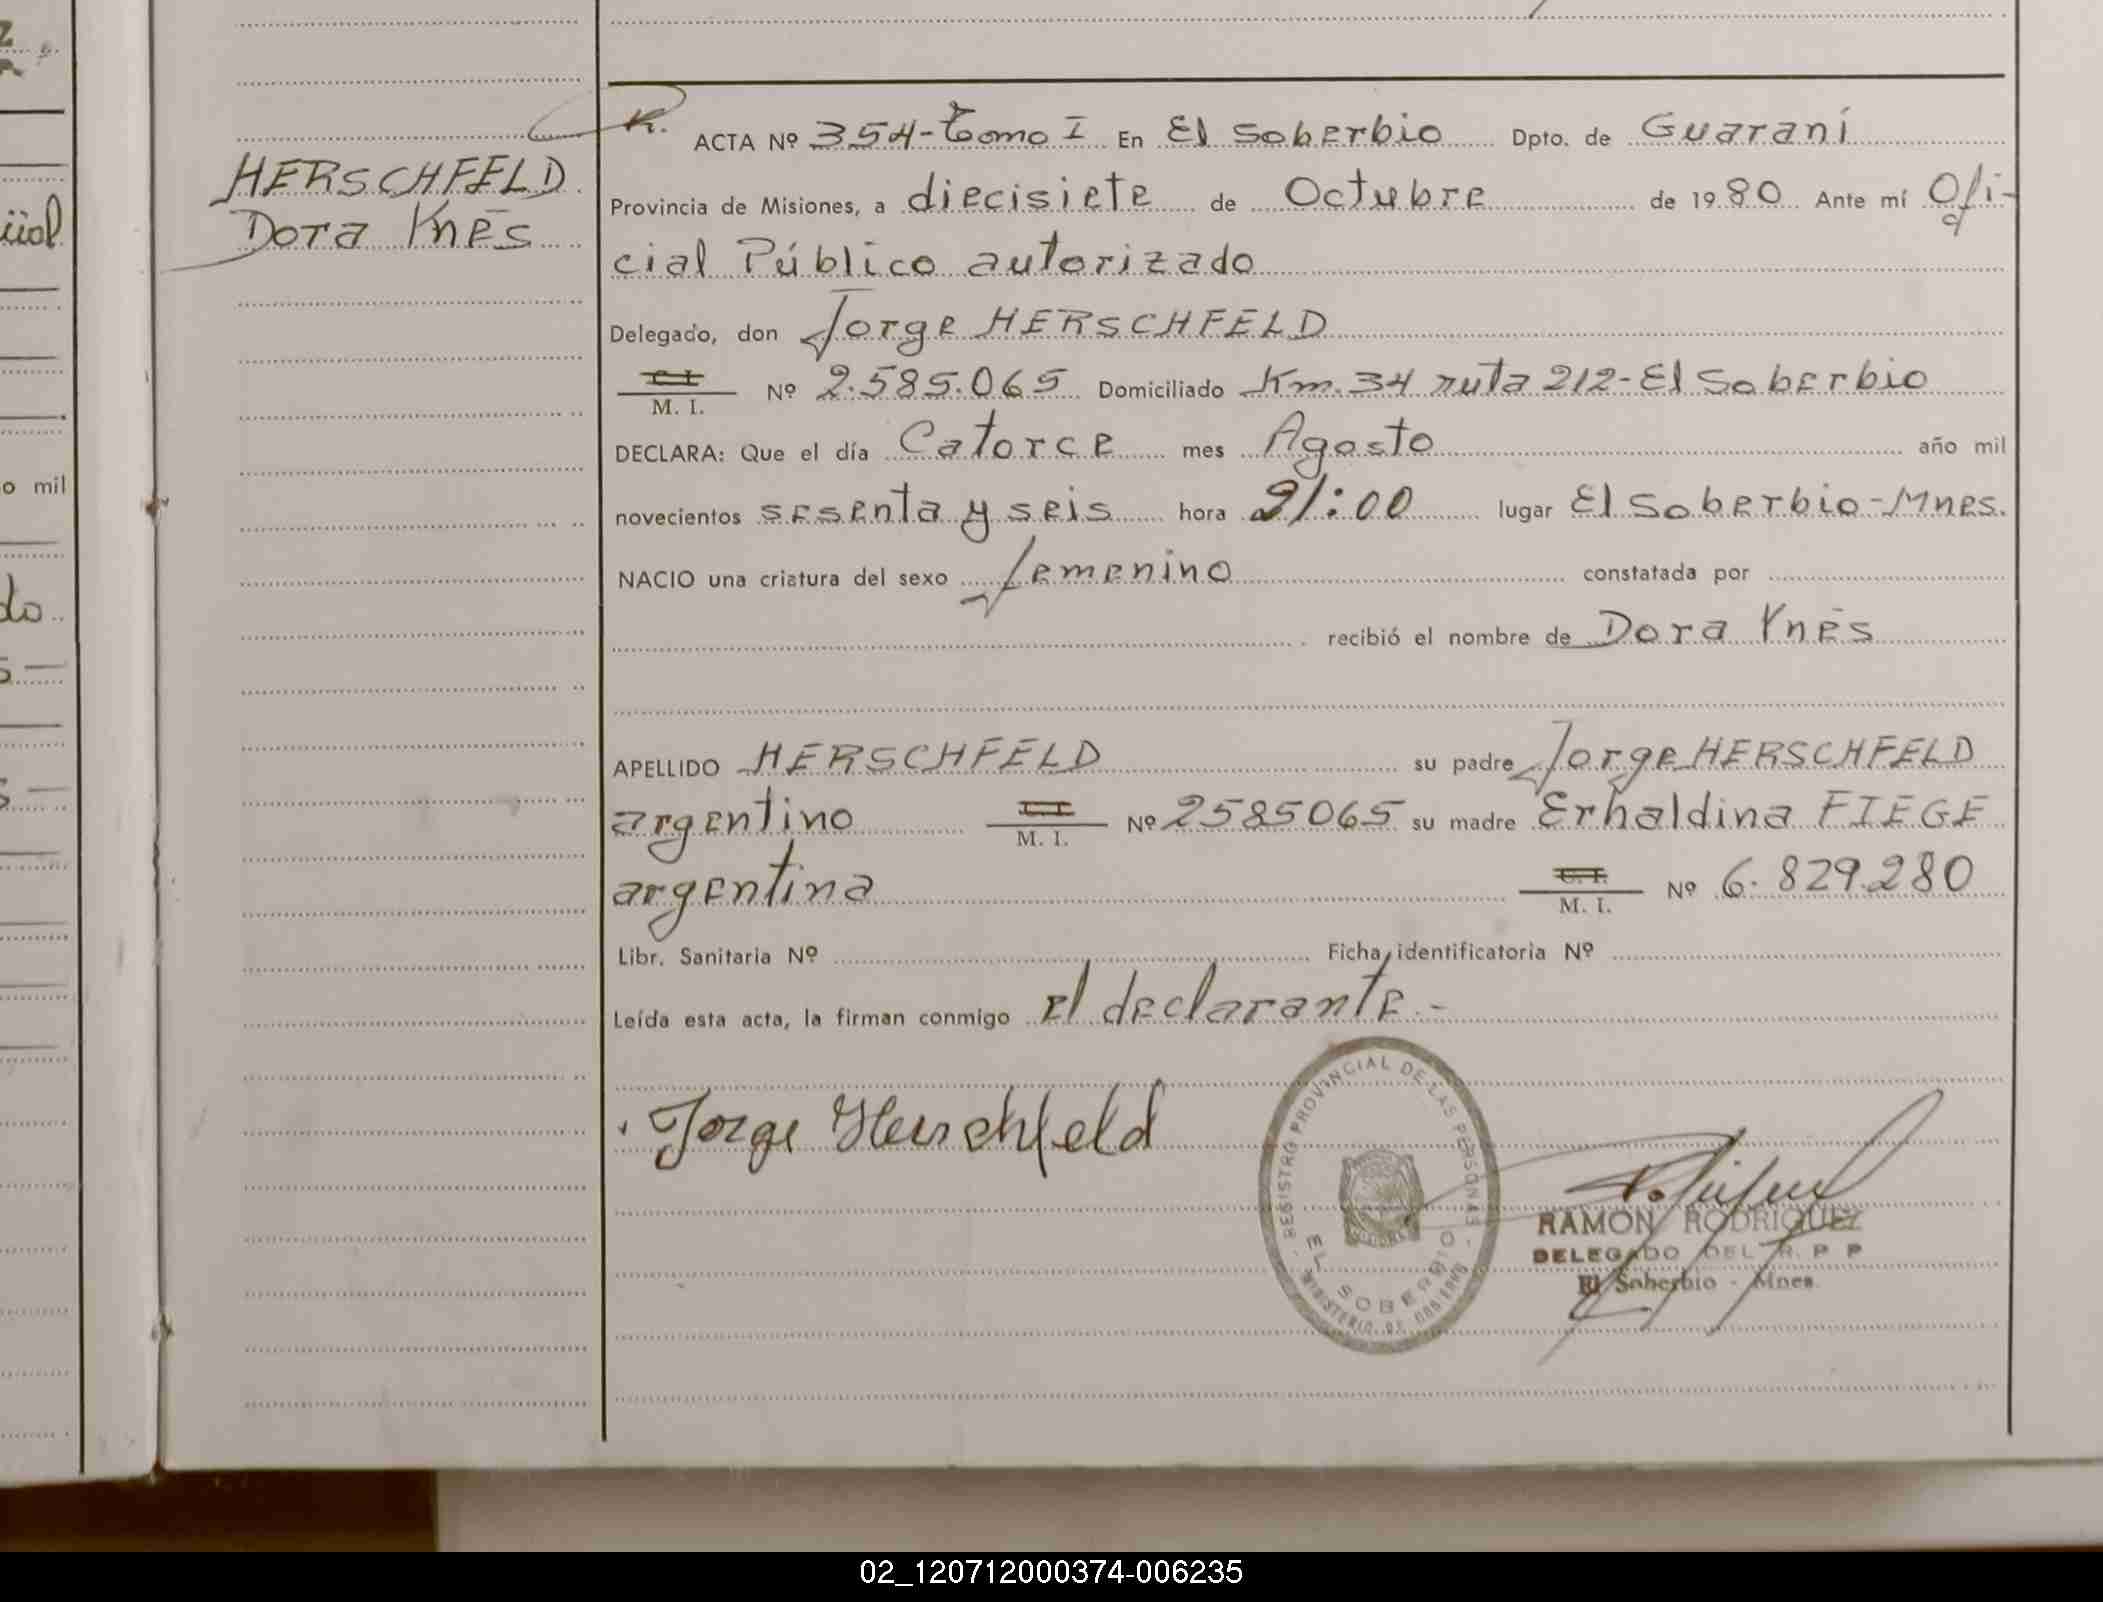 HERSCHFELD
Dora Ynés
ACTA Nº 354-Tomo I En El Soberbio Dpto. de Guaraní
Provincia de Misiones, a diecisiete de Octubre de 1980 Ante mí Ofi-
cial Público autorizado
Delegado, don Jorge HERSCHFELD
C. I.
M. I. Nº 2.585.065 Domiciliado Km. 34 ruta 212-El Soberbio
DECLARA: Que el día Catorce mes Agosto año mil
novecientos sesenta y seis hora 21:00 lugar El Soberbio-Mnes.
NACIO una criatura del sexo femenino constatada por
recibió el nombre de Dora Ynés
APELLIDO HERSCHFELD su padre Jorge HERSCHFELD
argentino C. I. M. I. Nº 2585065 su madre Erhaldina FIEGE
argentina C. I. M. I. Nº 6.829.280
Libr. Sanitaria Nº Ficha identificatoria Nº
Leída esta acta, la firman conmigo El declarante.-
Jorge Herschfeld
REGISTRO PROVINCIAL DE LAS PERSONAS
EL SOBERBIO
MINISTERIO DE GOBIERNO
RAMON RODRIGUEZ
DELEGADO DEL R. P P
El Soberbio - Mnes.
üol
o mil
do
02_120712000374-006235